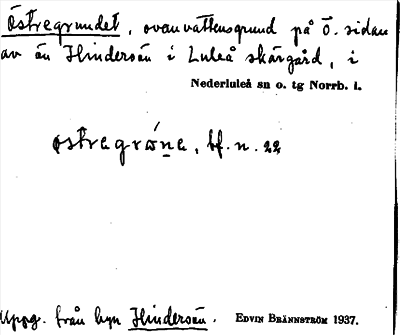 Östregrundet, ovanvattensgrund på ö. sidan
av ön Hindersön i Luleå skärgård, i
Nederluleå sn o. tg Norrb. l.
østragrώn̲a, bf. n. 22
Uppg. från byn Hindersön. EDVIN BRÄNNSTRÖM 1937.